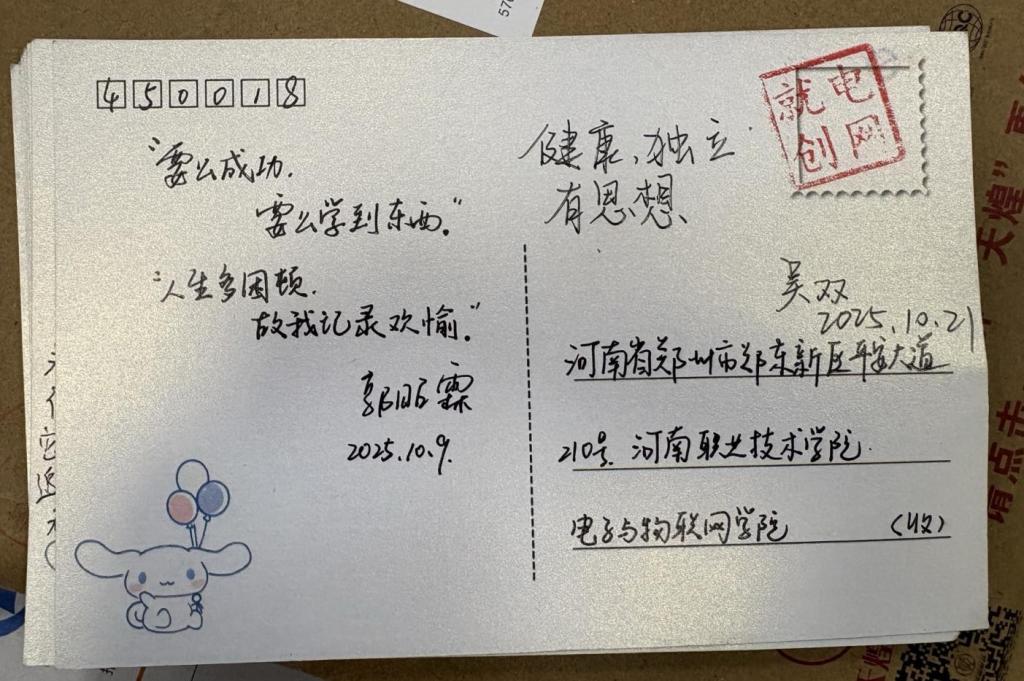 450018
“要么成功.
要么学到东西。”
“人生多困顿.
故我记录欢愉。”
2025.10.9.
健康、独立
有思想、
就电
创网
吴双
2025.10.21
河南省郑州市郑东新区平安大道
210号 河南职业技术学院.
电子与物联网学院 （收）
天煌”
请点击
570